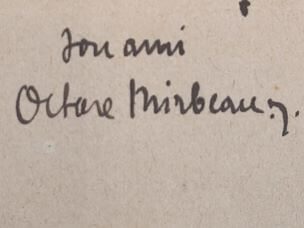 son ami
Octave Mirbeau.